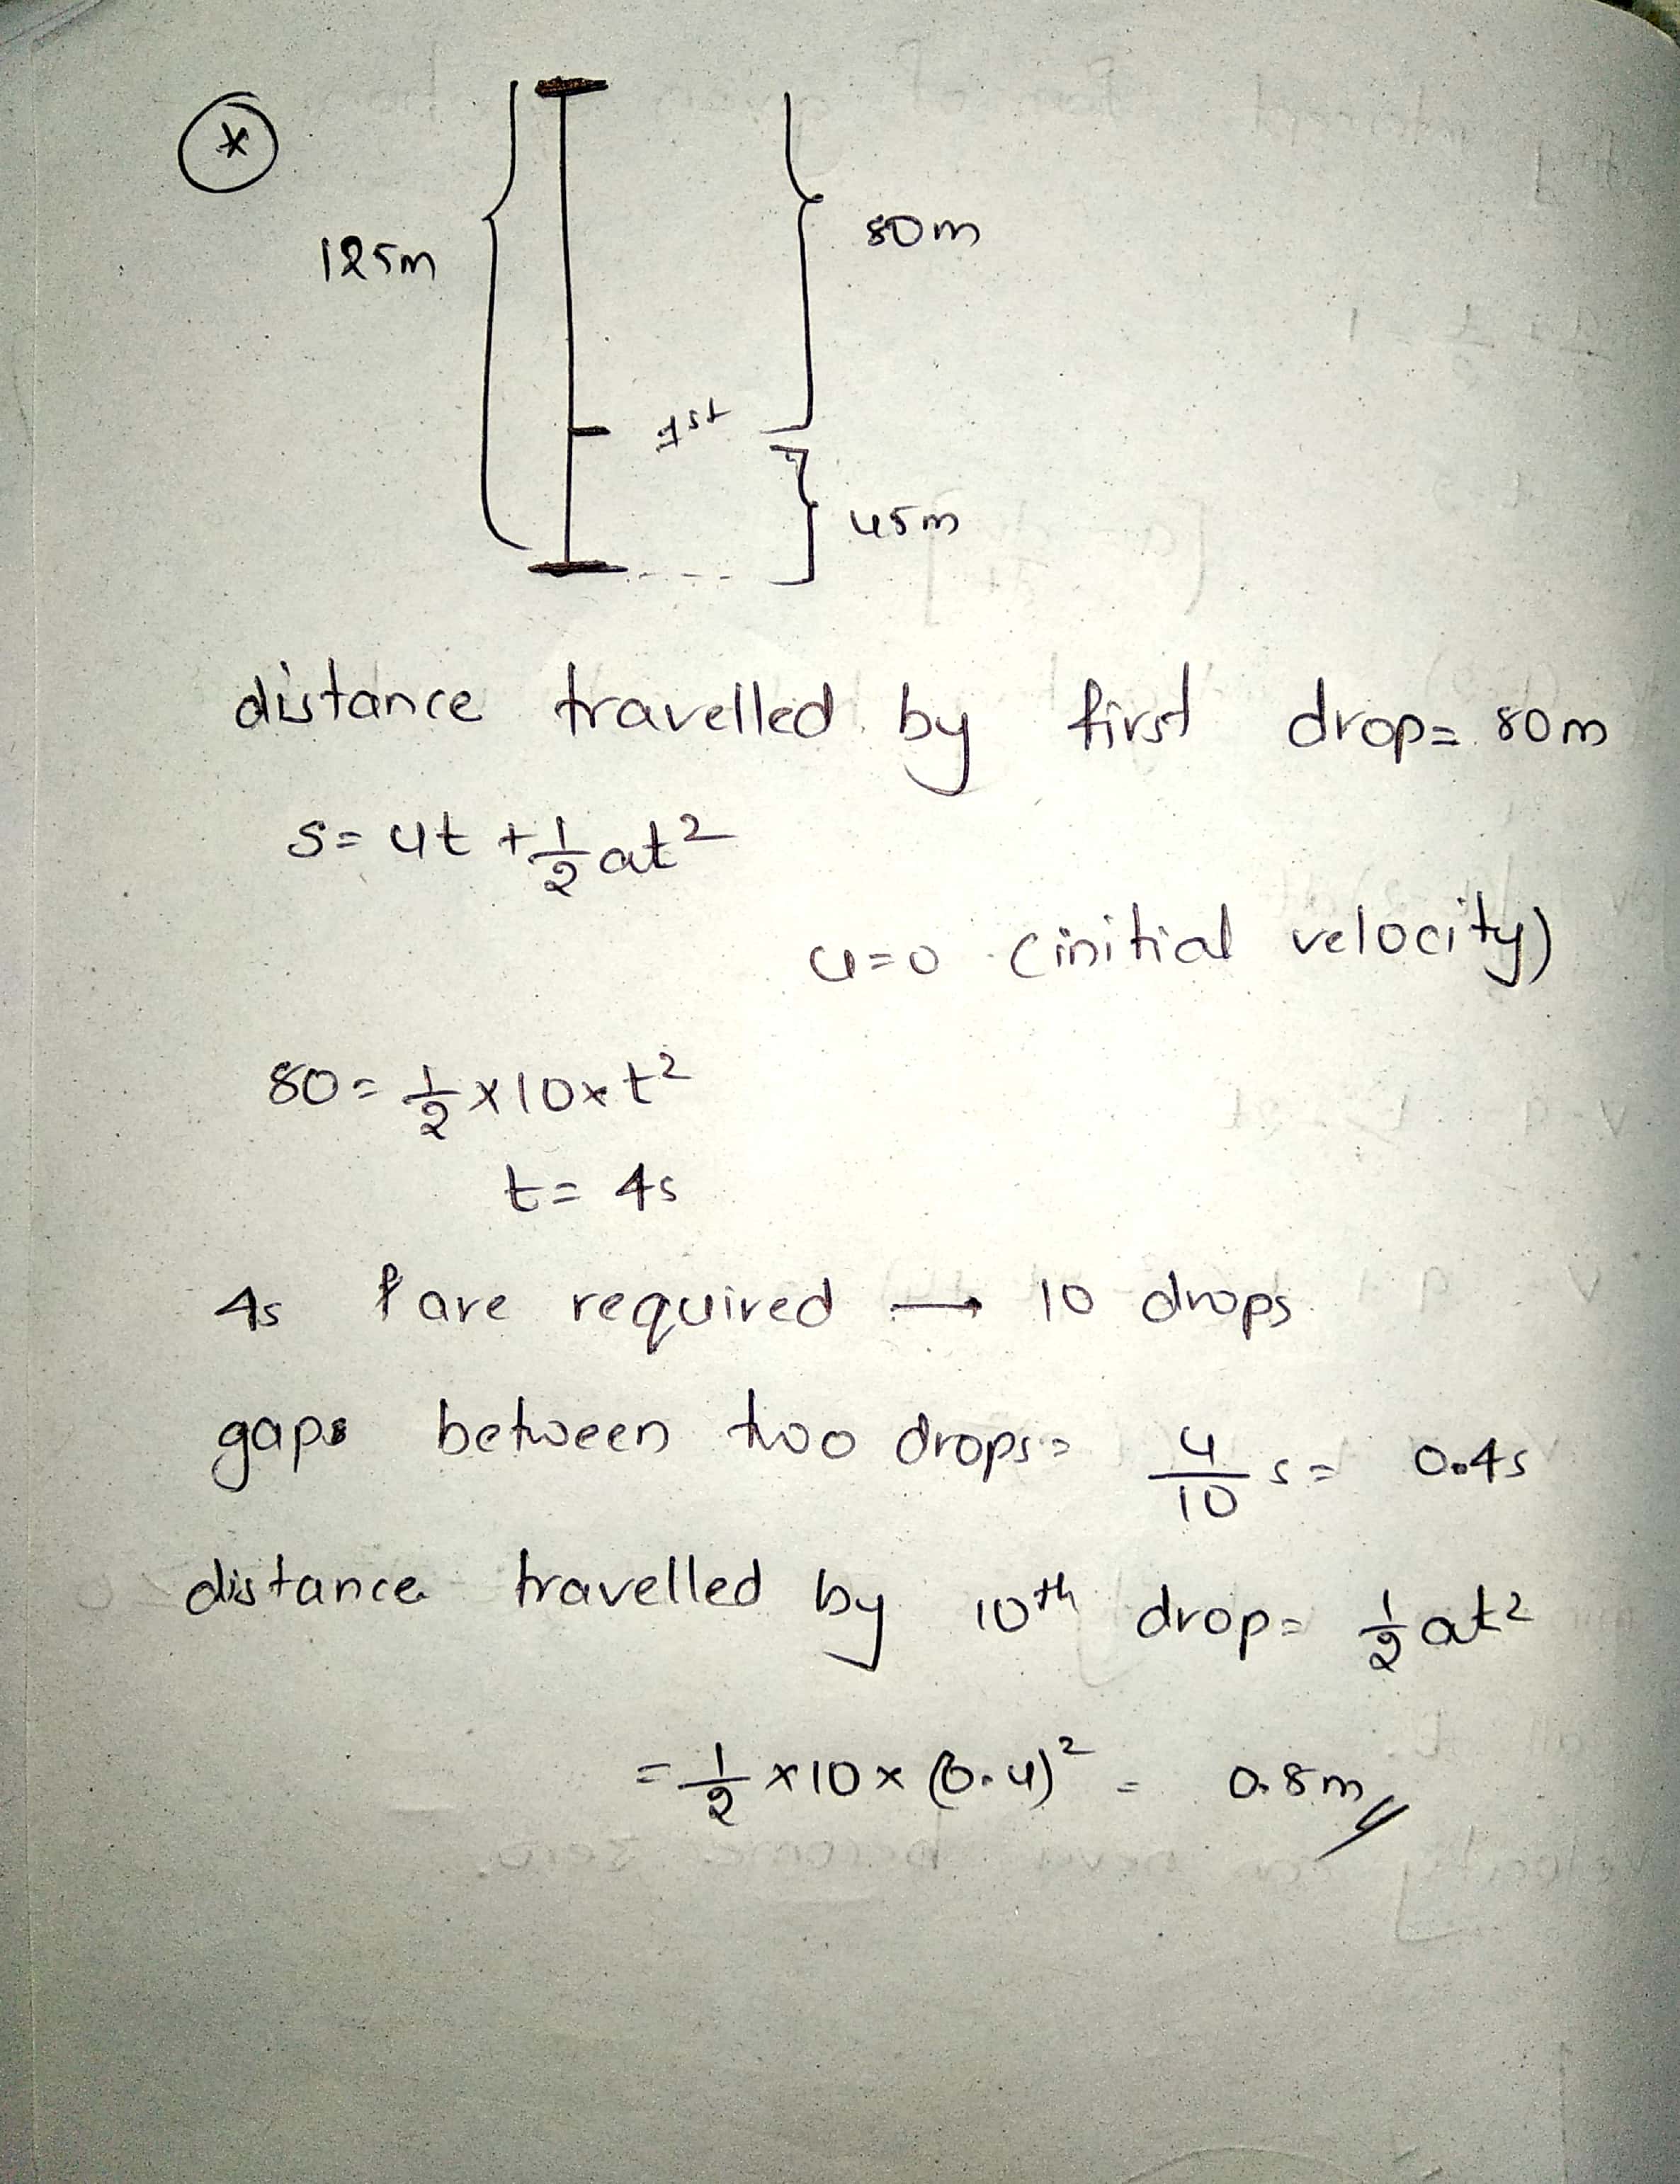 *
125m
80m
1st
45m
distance travelled by first drop= 80m
s= ut + 1/2 at²
u=0 (initial velocity)
80= 1/2 ×10×t²
t= 4s
4s are required → 10 drops
gaps between two drops= 4/10 s= 0.4s
distance travelled by 10th drop= 1/2 at²
= 1/2 ×10× (0.4)² = 0.8m